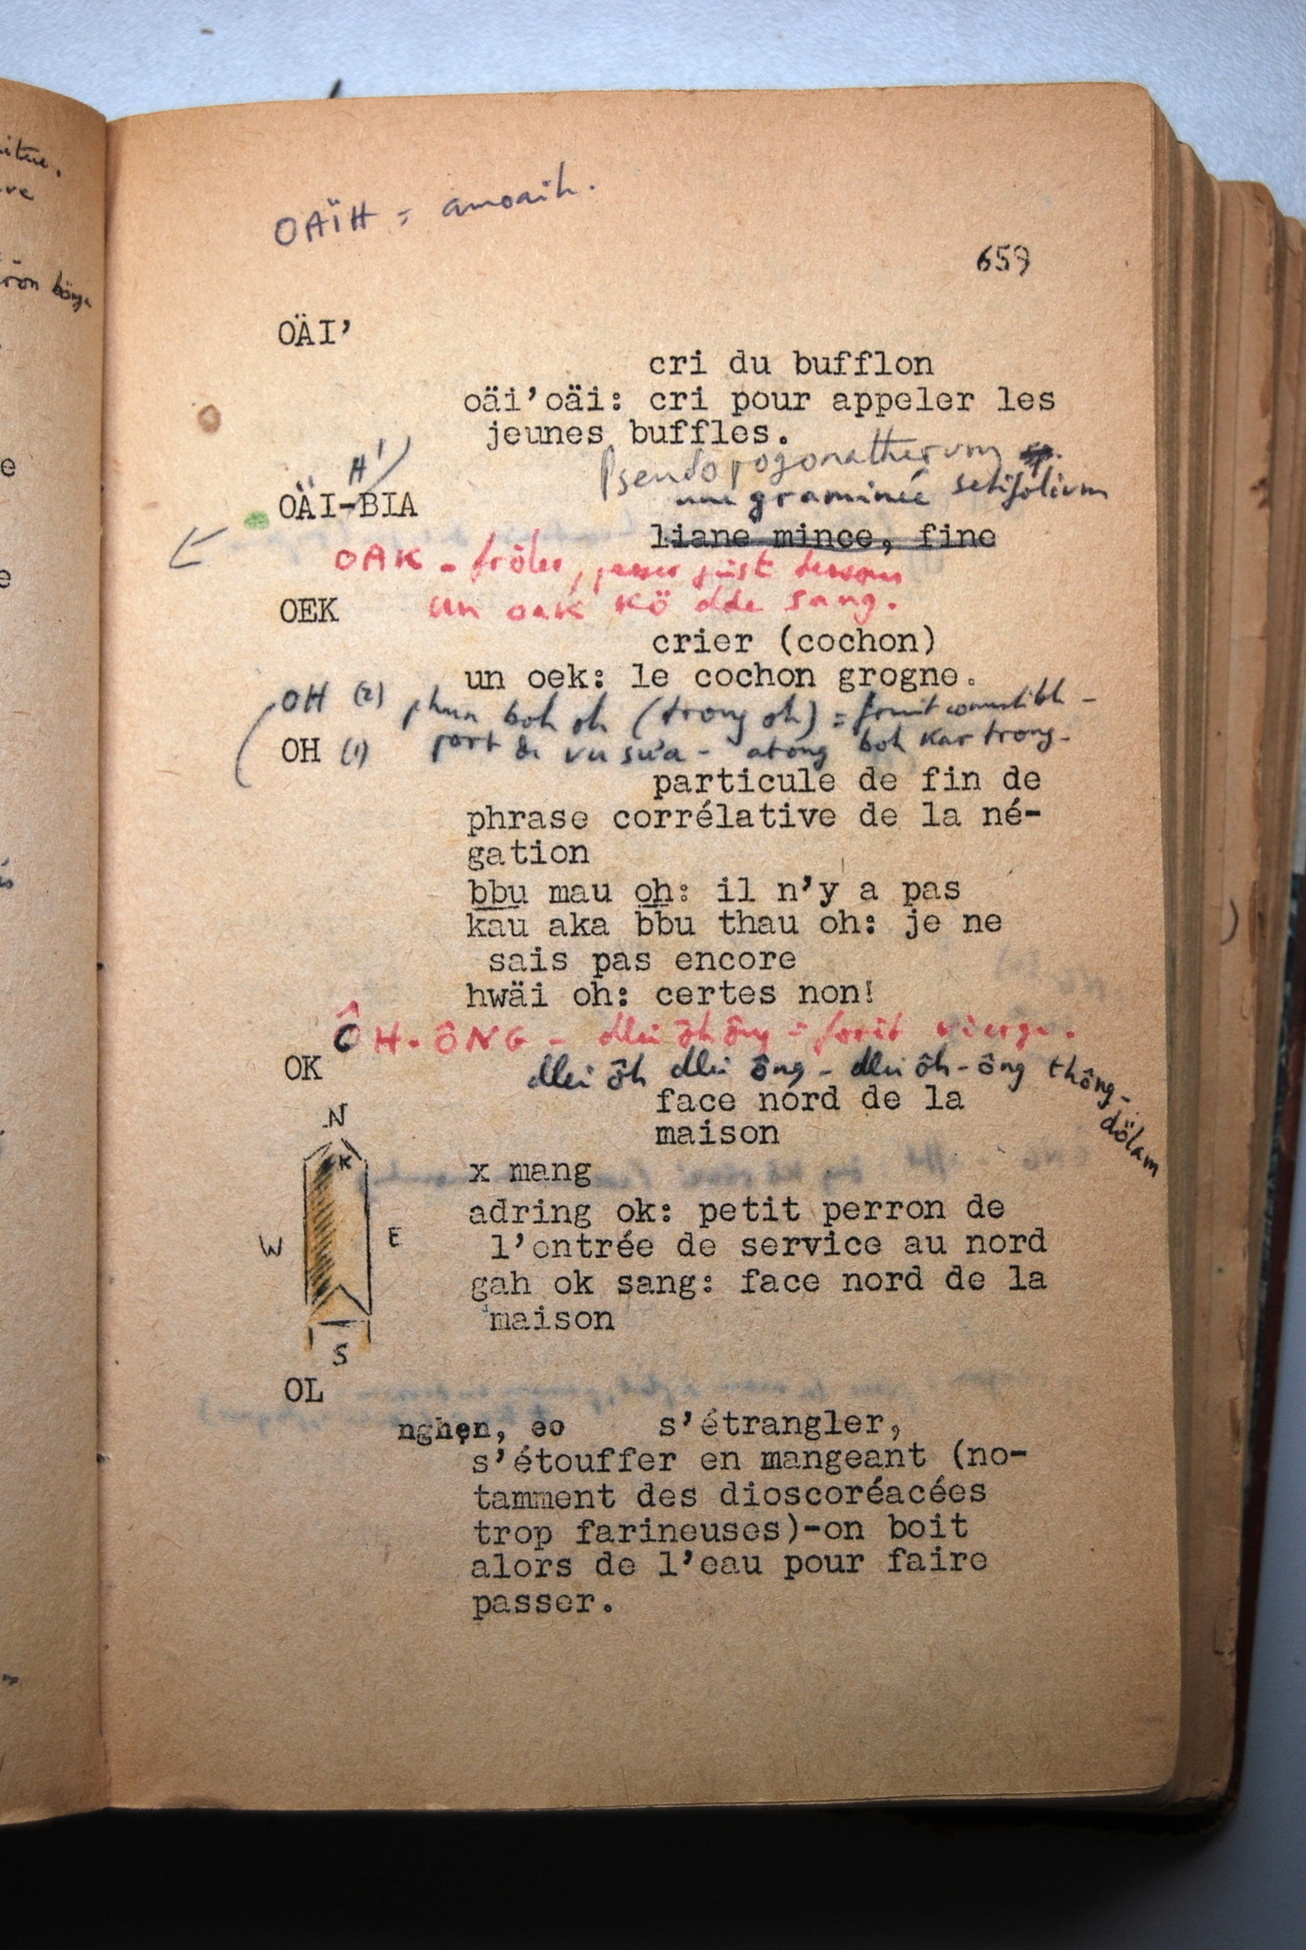 OAÏH = amoaih.
659
OÄI'
cri du bufflon
oäi'oäi: cri pour appeler les
jeunes buffles.
Pseudopogonatherum sp.
H'
une graminée setifolium
OÄI-BIA
liane mince, fine
OAK - frôler, passer juste dessous
un oak kö dde sang.
OEK
crier (cochon)
un oek: le cochon grogne.
OH (2) phun boh oh (trong oh) = fruit comestible -
OH (1) port de vu sua - atong boh kar trong-
particule de fin de
phrase corrélative de la né-
gation
bbu mau oh: il n'y a pas
kau aka bbu thau oh: je ne
sais pas encore
hwäi oh: certes non!
ÔH-ÔNG - dlei ôh ông = forêt vierge.
OK
dlei ôh dlei ông - dlei ôh-ông thông-
dölam
face nord de la
maison
N
K
x mang
adring ok: petit perron de
W E
l'entrée de service au nord
gah ok sang: face nord de la
maison
S
OL
nghẹn, eo s'étrangler,
s'étouffer en mangeant (no-
tamment des dioscoréacées
trop farineuses)-on boit
alors de l'eau pour faire
passer.